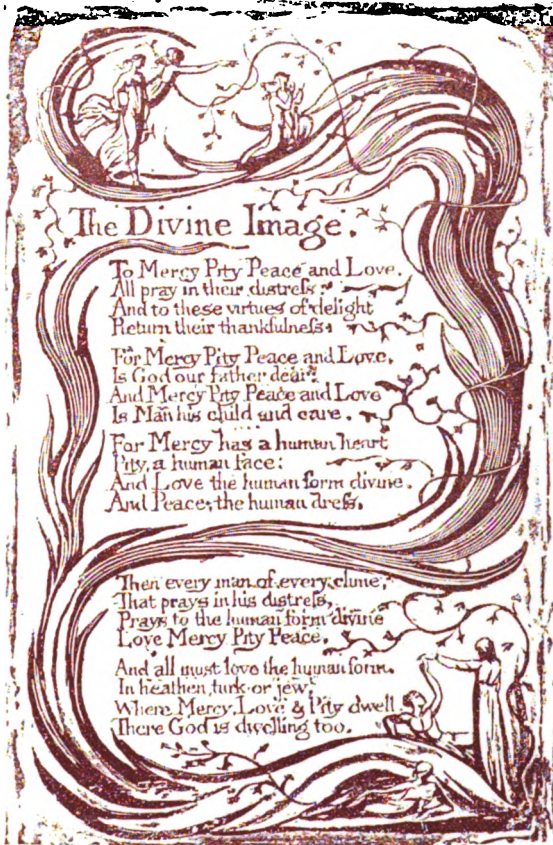 The Divine Image.
To Mercy Pity Peace and Love.
All pray in their distress:
And to these virtues of delight
Return their thankfulness.
For Mercy Pity Peace and Love,
Is God our father dear:
And Mercy Pity Peace and Love
Is Man his child and care.
For Mercy has a human heart
Pity, a human face:
And Love the human form divine.
And Peace, the human dress.
Then every man of every clime,
That prays in his distress,
Prays to the human form divine
Love Mercy Pity Peace.
And all must love the human form.
In heathen, turk or jew.
Where Mercy, Love & Pity dwell
There God is dwelling too.